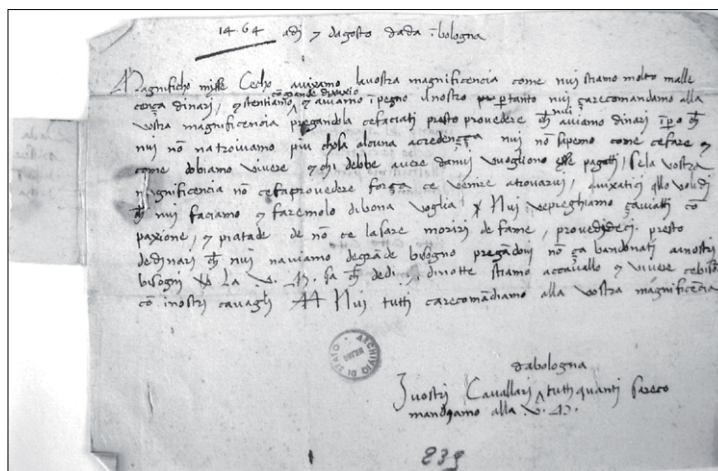 1464 adj 7 dagosto dada ī bologna
Magnificho miss Cecho avixamo lavostra magnificencia come nui stiamo molto malle
cō grande dixaxio
cença dinari, & stentiamo & aviamo ī pegno il nostro per tanto nui ça recomandamo alla
vostra magnificencia pregandola ce faciati presto provedere ch nui aviamo dinari
nui nō na trovuamo piu chosa alcuna acredença nui nō sapemo come ce fare &
come dobiamo vivere & chi debbe avere da nui vuogliono pagati, se la vostra
magnificencia nō ce fa provedere força ce venire atrovarvj, avixatici qllo voletj
ch nui faciamo & faremolo dibona voglia, Nui ve preghiamo çaviatj cō
paxione, & piatade de nō ce lasare morirj de fame, provedideci presto
dedinarj ch nui naviamo de grāde bisogno pregādovi nō ça bandonati ainostrj
bisognj La V. M. sa ch dedi, & dinotte stiamo accavallo & vivere cebisō
cō i nostrj cavaglj Nui tuttj ca recomādiamo alla vostra magnificēcia
ARCHIVIO DI STATO MILANO
da bologna
I vostrj Cavallarj tuttj quanti sareco
mandamo alla V. M.
239